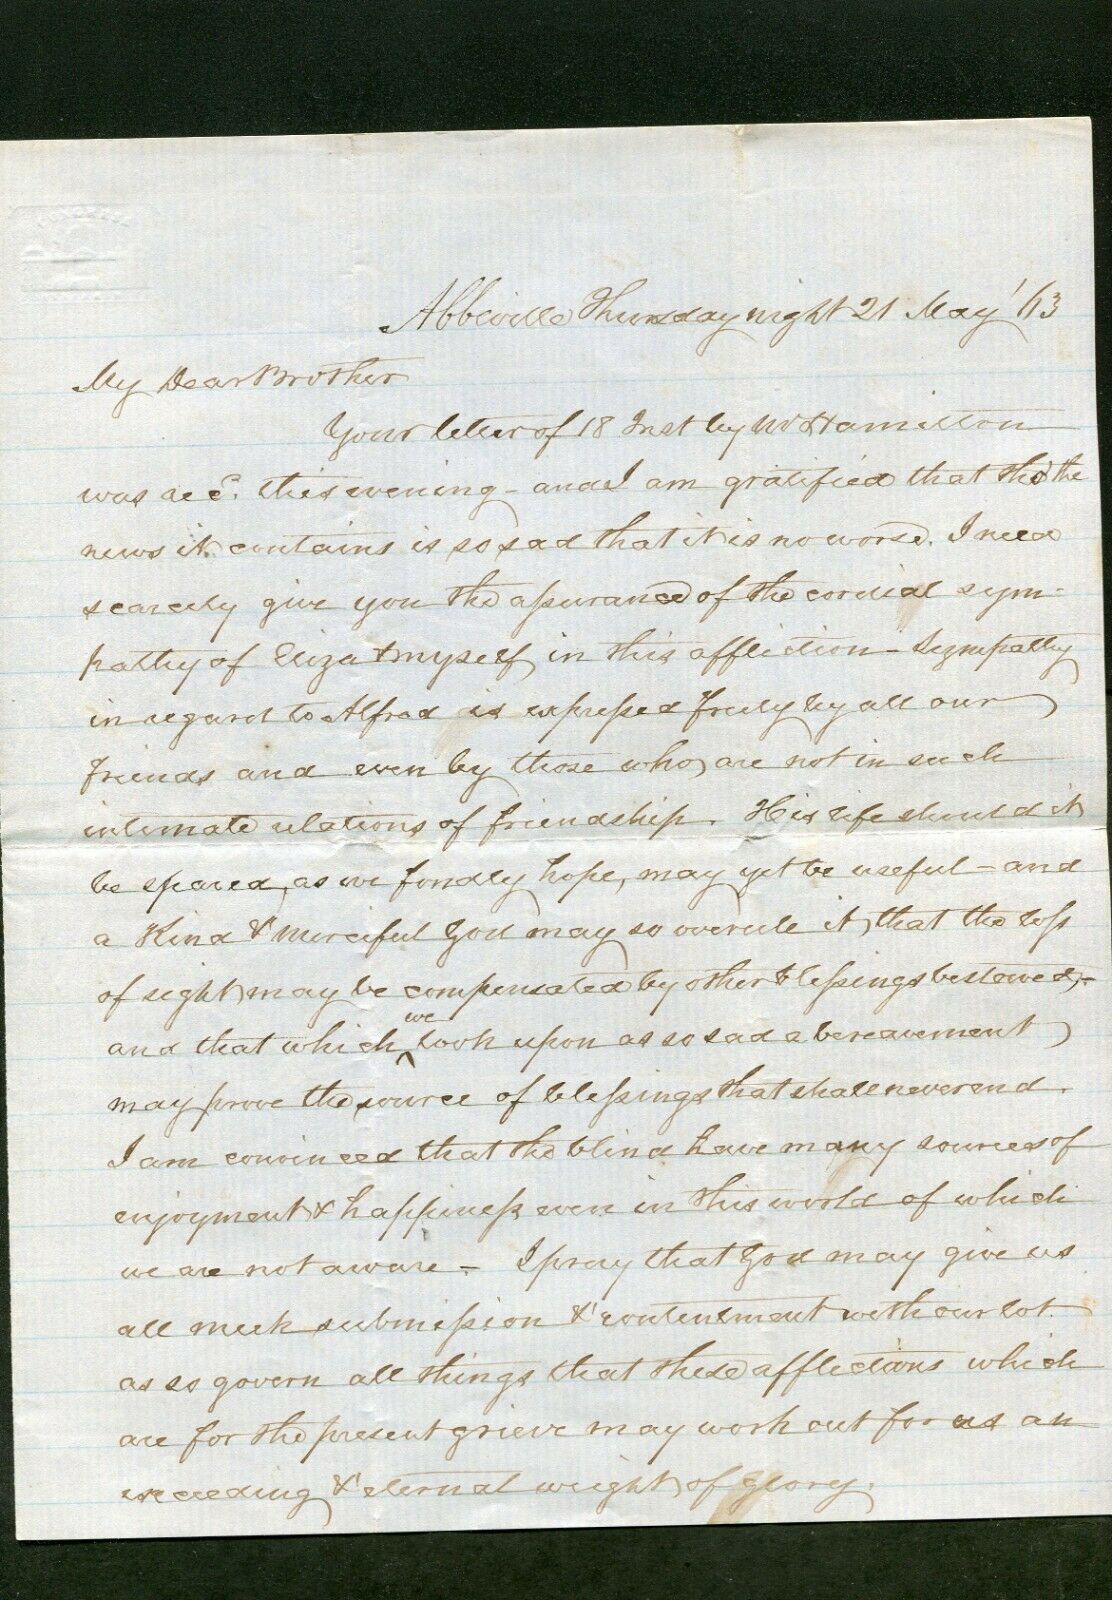 Abbeville Thursday night 21 May '63
My Dear Brother
Your letter of 18 Inst by Hamilton
was recd. this evening - and I am gratified that tho' the
news it contains is so sad that it is no worse. I need
scarcely give you the assurance of the cordial sym-
pathy of Eliza & myself in this affliction - Sympathy
in regard to Alfred is expressed freely by all our
friends and even by those who are not in such
intimate relations of friendship. His life should it
be spared, as we fondly hope, may yet be useful - and
a Kind & Merciful God may so overrule it, that the loss
of sight may be compensated by other blessings bestowed, -
and that which we look upon as so sad a bereavement
may prove the source of blessings that shall never end.
I am convinced that the blind have many sources of
enjoyment & happiness even in this world of which
we are not aware. - I pray that God may give us
all meek submission & contentment with our lot
as so govern all things that these afflictions which
are for the present grieve may work out for us an
exceeding & eternal weight of glory.